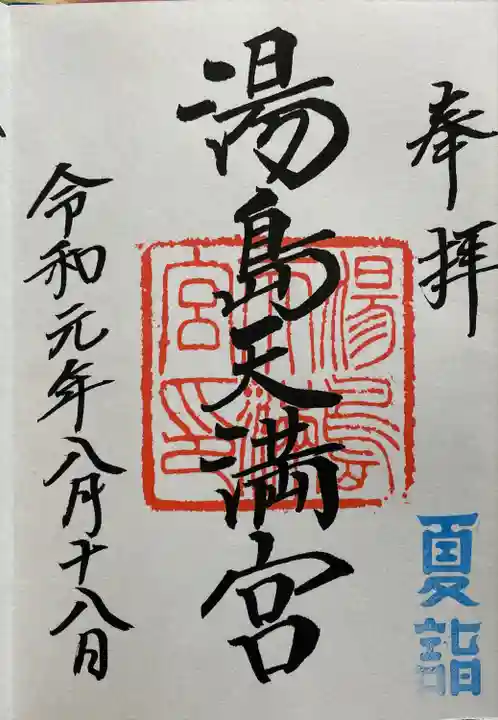 奉拝
湯島天満宮
湯島天満宮印
令和元年八月十八日
夏詣